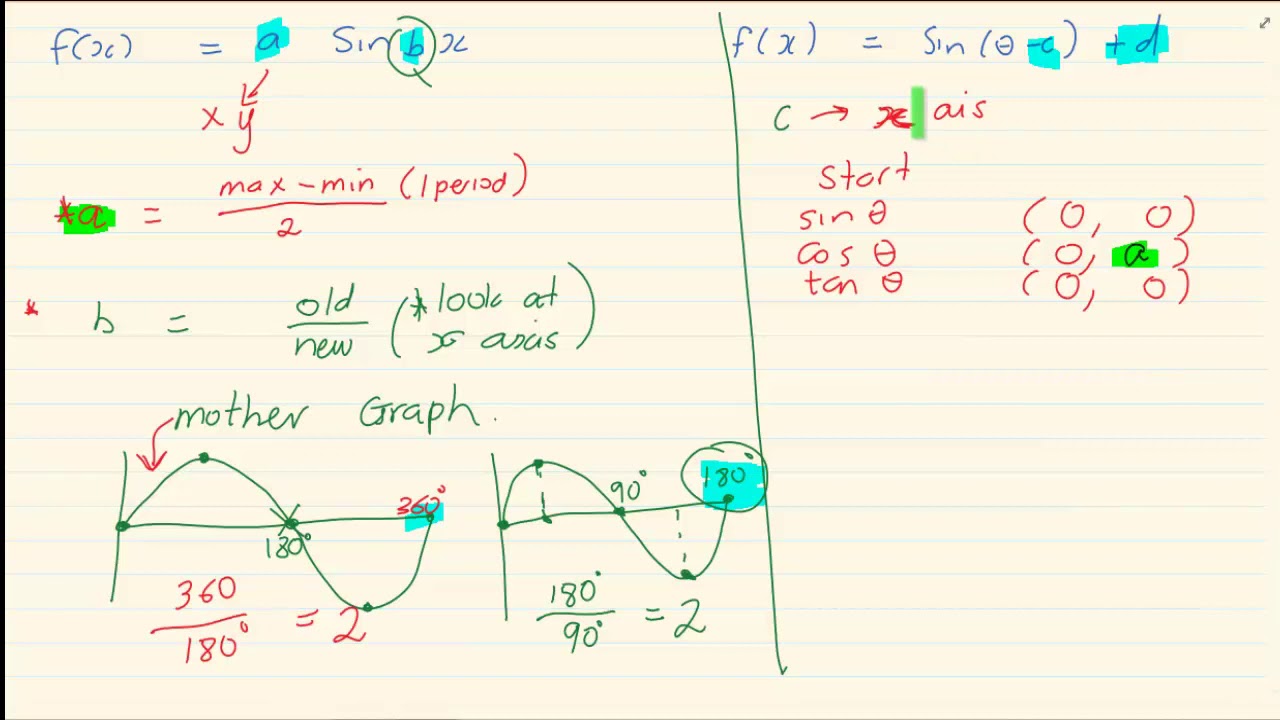 f(x) = a Sin b x
x y
*a = max - min / 2 (1 period)
* b = old / new (* look at
x axis)
mother Graph.
360°
180°
360 / 180° = 2
90°
180°
180° / 90° = 2
f(x) = Sin(θ - c) + d
c → x ais
Start
sin θ (0, 0)
cos θ (0, a)
tan θ (0, 0)